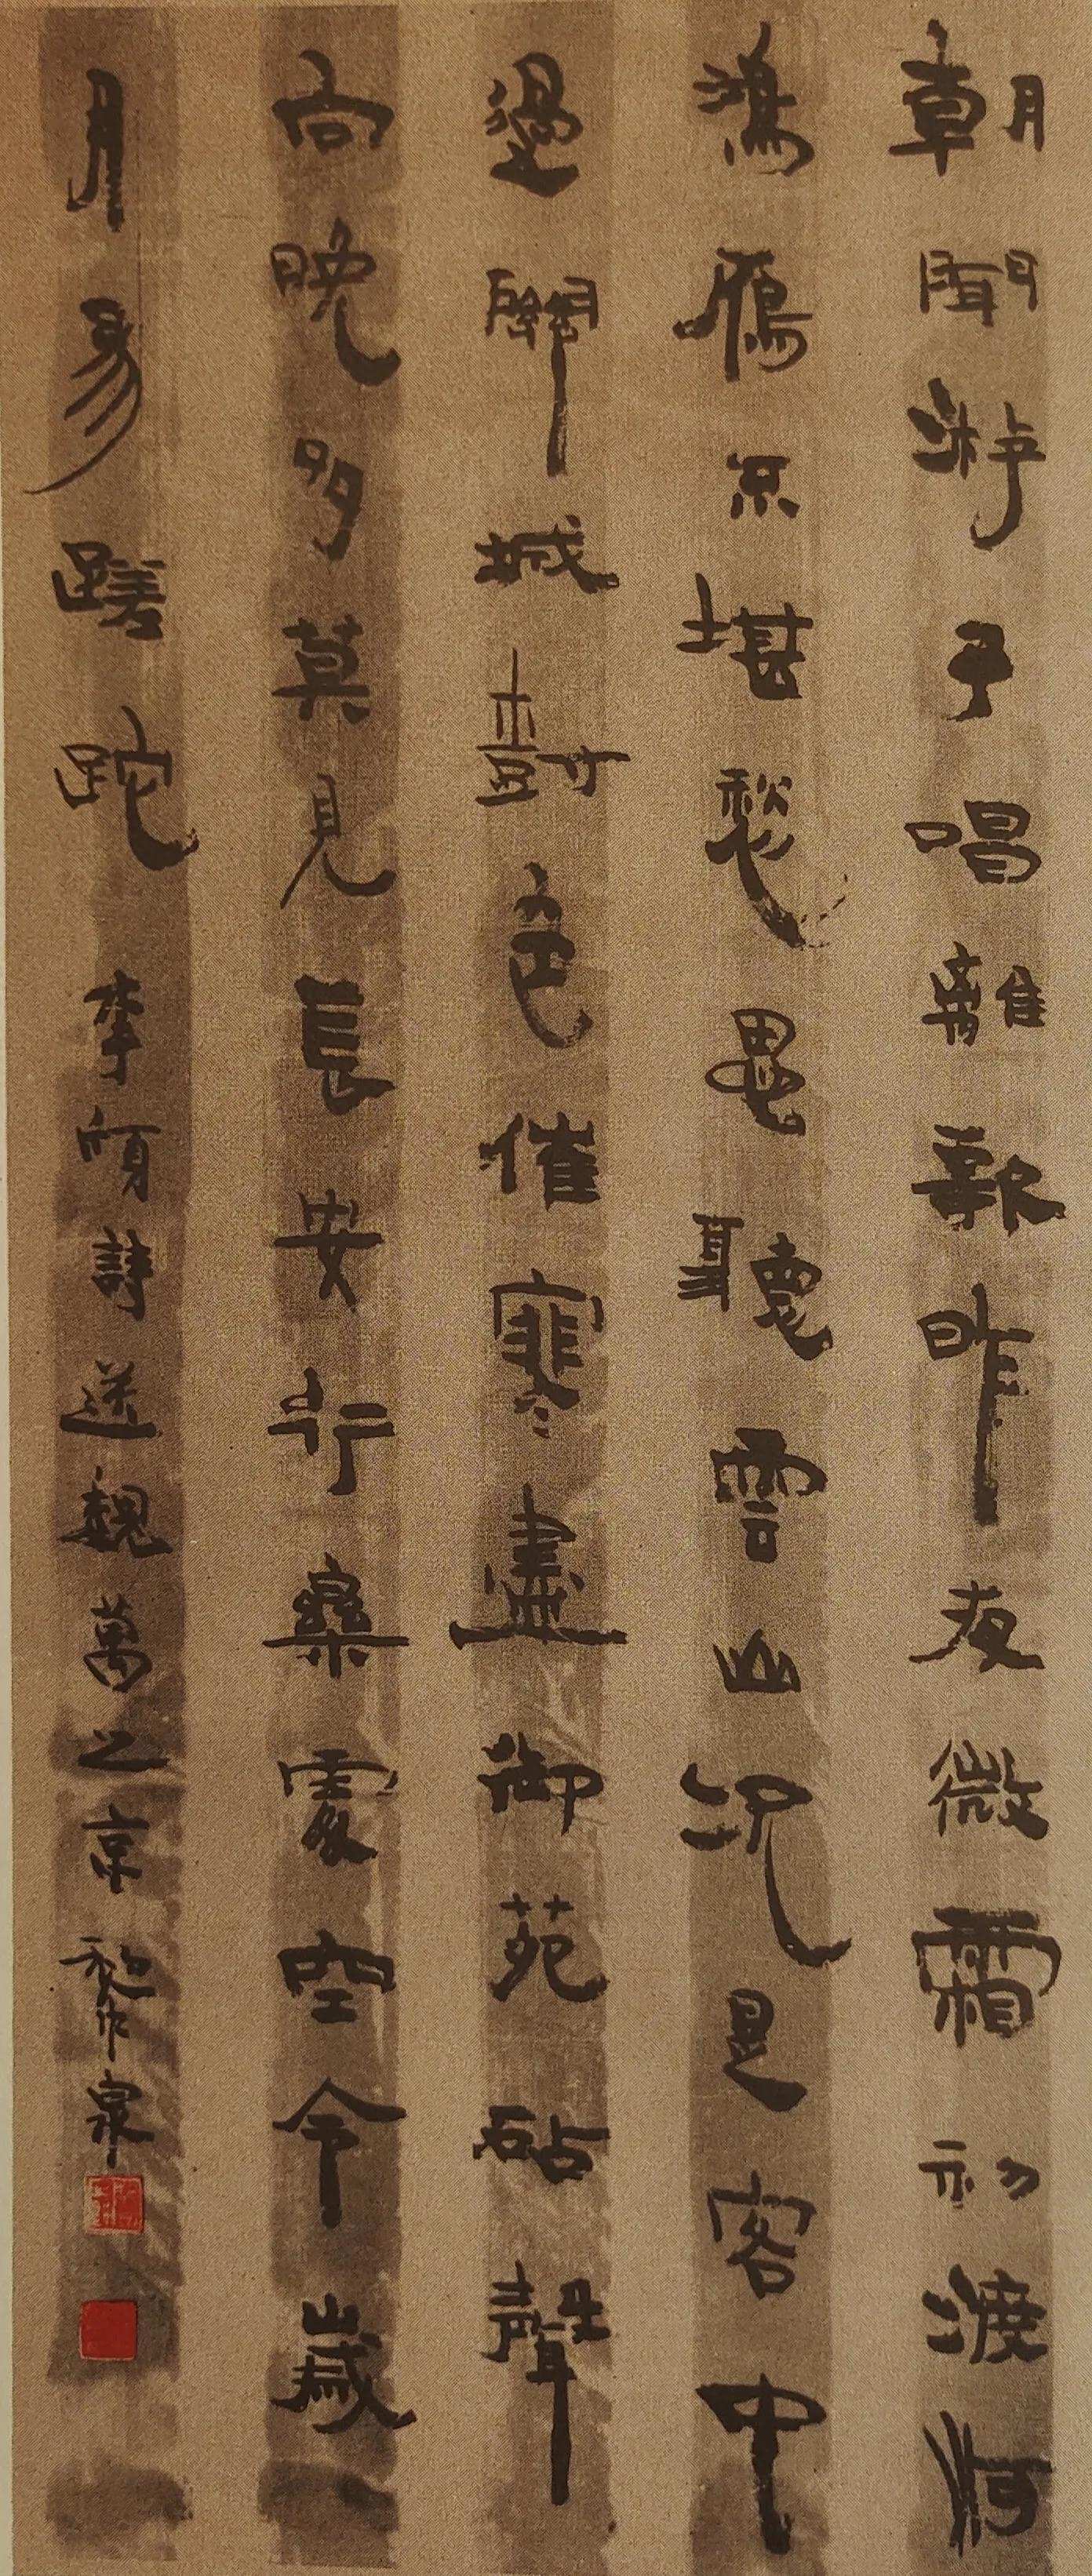 朝聞游子唱離歌昨夜微霜初渡河
鴻鴈不堪愁裏聽雲山況是客中
過關城樹色催寒盡御苑砧聲
向晚多莫見長安行樂處空令歲
月易蹉跎 李頎詩送魏萬之京 黎泉